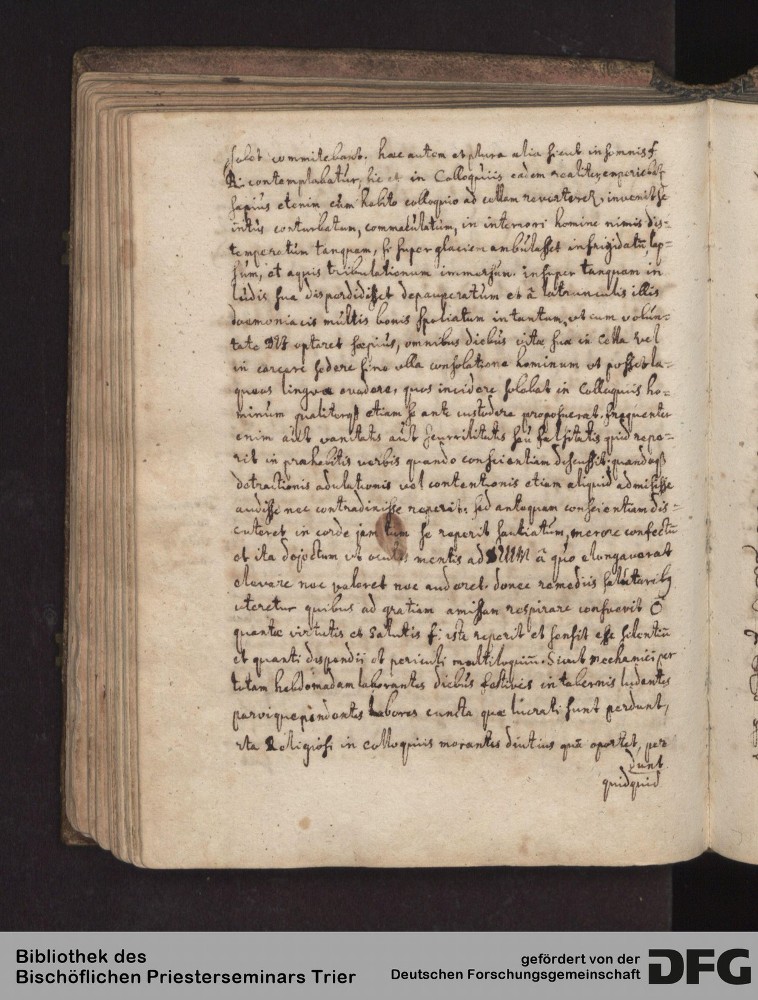 solet committebant. haec autem et plura alia sicut in somnis f
R. contemplabatur, sic et in Colloquiis eadem realiter experieb
saepius etenim cum habito colloquio ad cellam reverteret, invenit se
intus conturbatum, commaculatum, in interiori homine nimis dis=
temperatum tanquam, si super glaciem ambulasset infrigidatu, lap=
sum, et aquis tribulationum immersum. insuper tanquam in
ludis sua disperdidisset depauperatum et â latrunculis illis
daemoniacis multis bonis spoliatum in tantum, ut cum volun=
tate DEI optaret saepius, omnibus diebus vitae suae in Cella vel
in carcere sedere sine ulla consolatione hominum ut posset la=
queos linguae evadere, quos incidere solebat in Colloquiis ho=
minum qualitercq etiam se ante custodire proposuerat. frequenter
enim aut vanitatis aut scurrilitatis seu falsitatis quid repe=
rit in praehabitis verbis quando conscientiam discussit; quandoq
detractionis adulationis vel contentionis etiam aliquid admisisse
audisse nec contradixisse reperit: sed antequam conscientiam dis=
cuteret in corde jam tum se reperit sauciatum, merore confectu
et ita dejectum ut oculos mentis ad DEUM â quo elongaverat
elevare nec valeret nec auderet. donec remediis salutarib
uteretur quibus ad gratiam amissam respirare consuevit Ô
quantae virtutis et salutis f: iste reperit et sensit esse silentiu
et quanti dispendii et periculi multiloquium. Sicut mechanici per
totam hebdomadam laborantes diebus festivis in tabernis ludentes
parvique pendentes labores cuncta quae lucrati sunt perdunt,
ita Religiosi in colloquiis morantes diutius quâ oportet, per
dunt
quidquid
Bibliothek des
Bischöflichen Priesterseminars Trier
gefördert von der
Deutschen Forschungsgemeinschaft
DFG